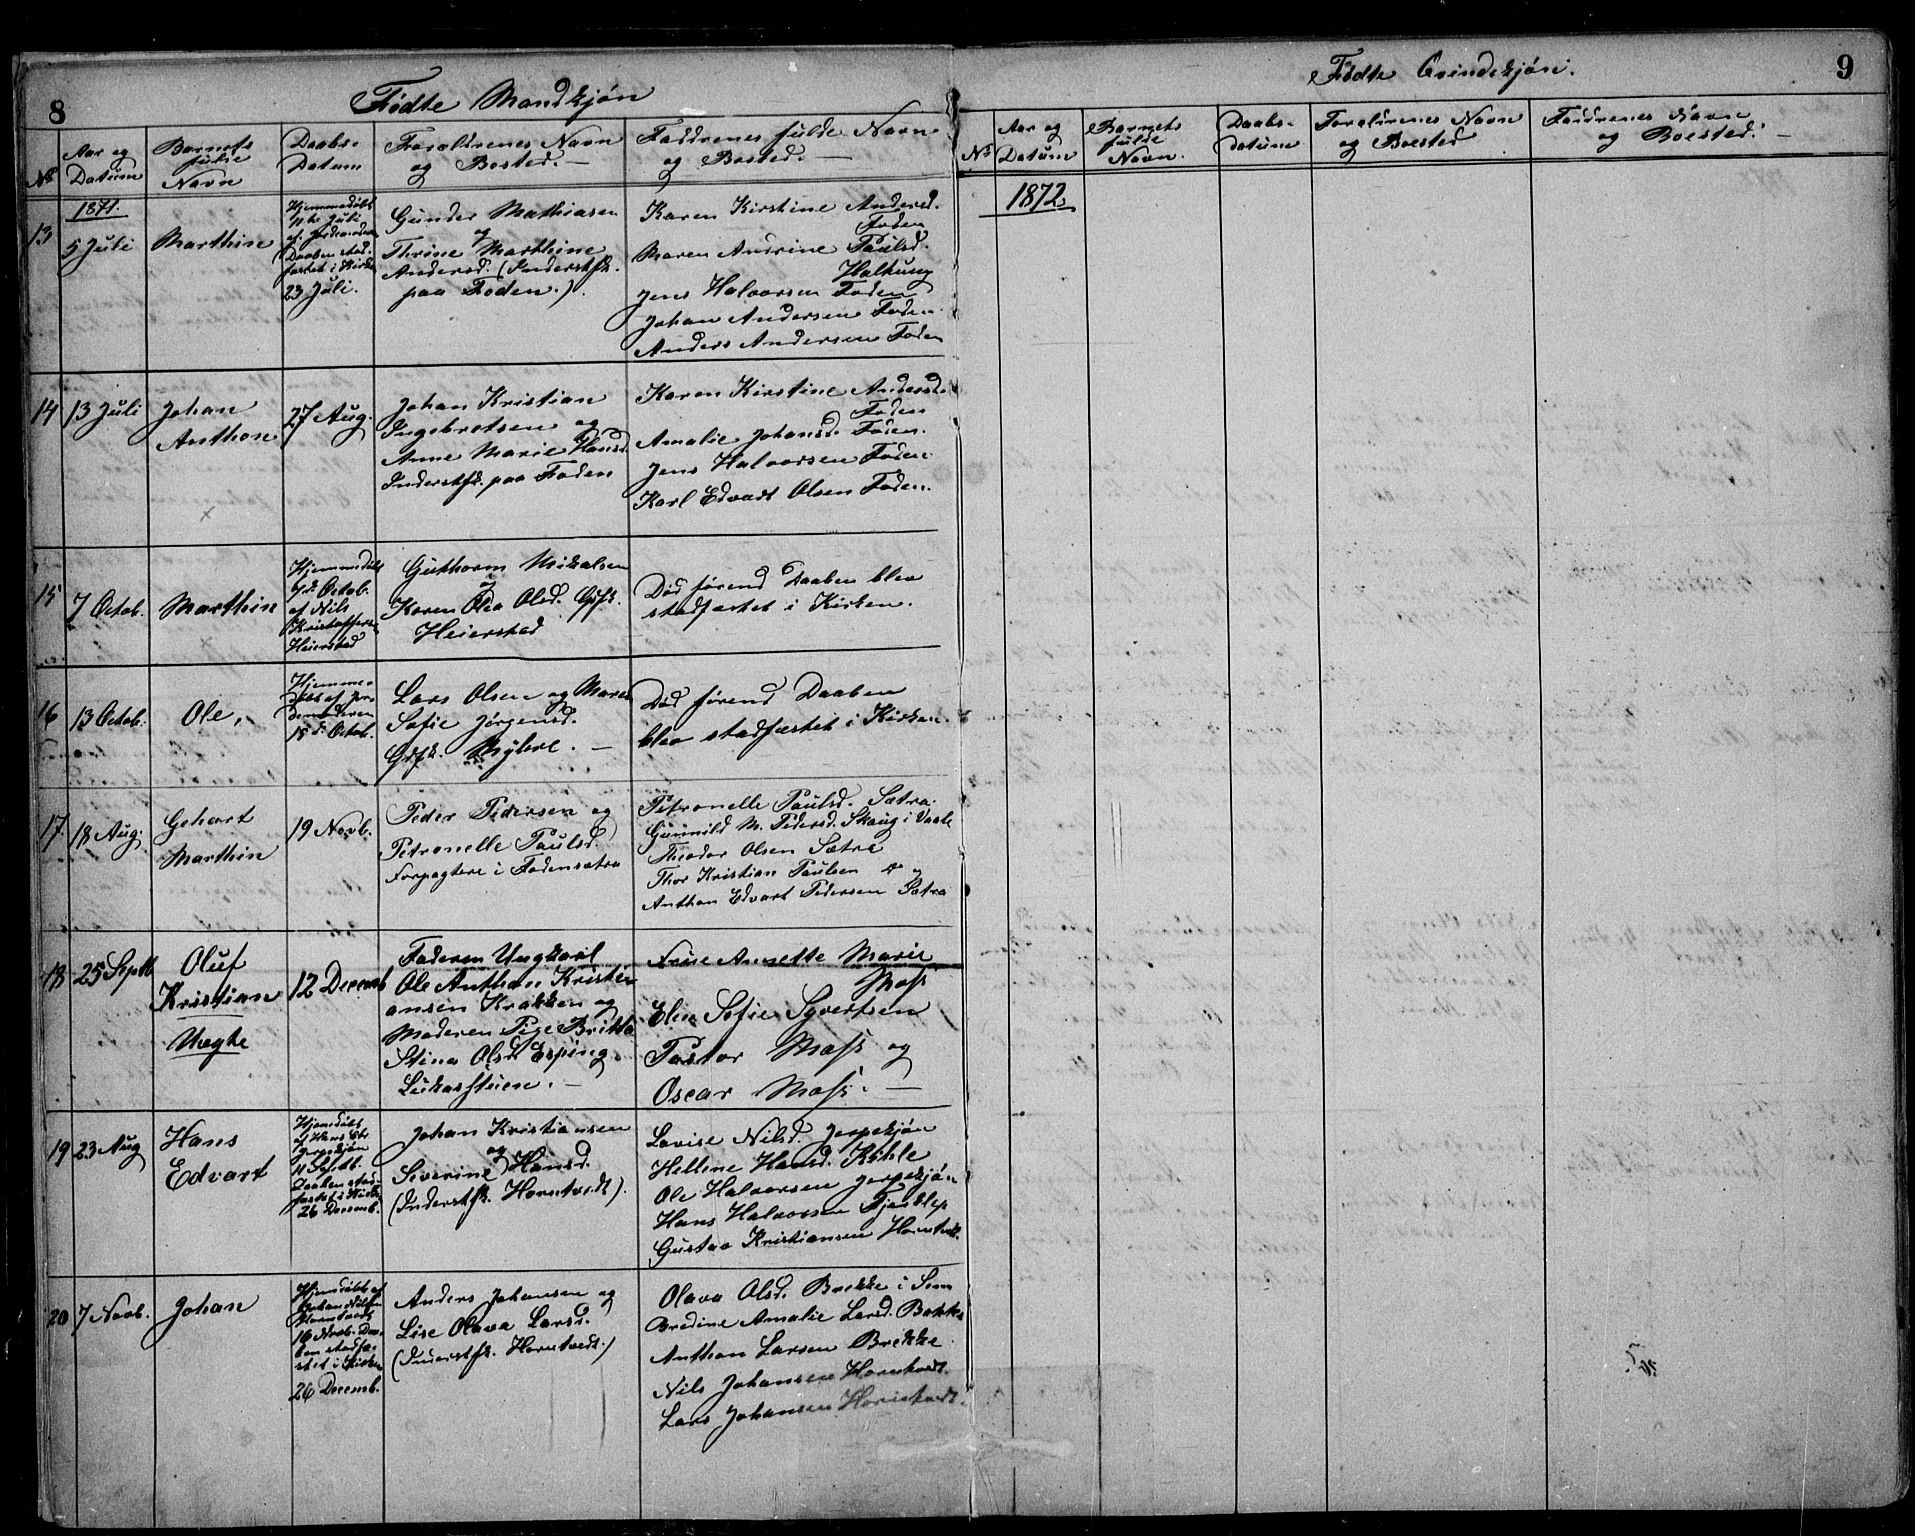 8
Födte Mandkjön
No
Aar og
Datum
Barnets
fulde
Navn
Daabs-
Datum
Forældrenes Navn
og Bosted.
Faddrenes fulde Navn
og Bosted.
13
1871.
5 Juli
Marthin
Hjemmedöbt
Juli
af Jordemoderen
Daaben stad-
fæstet i Kirke
23 Juli.
Gunder Mathiasen
og
Thrine Marthine
Andersd. (Inderstfk.
paa Foden.)
Karen Kirstine Andersd.
Foden
Maren Andrine Paulsd.
Haltung
Jens Halvorsen Foden
Johan Andersen Foden
Anders Andersen Foden
14
13 Juli
Johan
Anthon
27 Aug.
Johan Kristian
Ingebretsen og
Anne Marie Hansd.
Inderstfk. paa Foden
Karen Kirstine Andersd.
Foden
Amalie Johansd. Foden.
Jens Halvorsen Foden
Karl Edvart Olsen Foden.
15
7 Octob.
Marthin
Hjemmedöbt
Octob.
af Nils
Kristoffersen
Heierstad
Guthorm Mikalsen
og
Karen Olea Olsd. Gdfk.
Heierstad
Död förend Daaben blev
stadfæstet i Kirken.
16
13 Octob.
Ole.
Hjemme-
döbt af Jor-
demoderen
15 d. Octob.
Lars Olsen og Maren
Sofie Jörgensd.
Gdfk.
Död förend Daaben
blev stadfæstet i Kirken.
17
18 Aug.
Gehart
Marthin
19 Novb.
Peder Pedersen og
Petronelle Paulsd.
Forpagtere i Fodensætra
Petronelle Paulsd. Sætra.
Gunnild M. Pedersd. Skaug i Vaale
Theodor Olsen Sætra
Thor Kristian Paulsen og
Anthon Edvart Pedersen Sætra
18
25 Septb
Oluf
Kristian
12 Decemb
Faderen Ungkarl
Ole Anthon Kristi-
ansen Krakken og
Moderen Pige Britta
Stina Olsd. Esping
Lukasstuen.
Anette Marie
Moss
Elen Sofie Syvertsen
Pastor Moss og
Oscar Moss.
19
23 Aug
Hans
Edvart
Hjemdöbt
af Hans Chr
Jerpekjön
11 Septb.
Daaben stad-
fæstet i Kirke
26 Decemb.
Johan Kristiansen
og
Severine Hansd.
(Inderstfk. Horntvedt).
Lovise Nilsd. Jerpekjön
Helline Hansd. Köhle
Ole Halvorsen Jerpekjön
Hans Halvorsen Fjæreslep
Gustav Kristiansen Horntvedt.
20
7 Novb.
Johan
Hjemdöbt af
Johan Nilsen
Horntvedt
16 Novb. Daa-
ben stadfæ-
stet i Kirken
26 Decemb.
Anders Johansen og
Lise Olava Larsd.
(Inderstfk. Horntvedt.)
Olava Olsd. Brekke i Sem
Bredine Amalie Larsd. Bakke
Anthon Larsen Brekke
Nils Johansen Horntvedt.
Lars Johansen Horntvedt.
9
Födte Qvindekjön.
No
Aar og
Datum
Barnets
fulde
Navn.
Daabs-
datum
Forældrenes Navn
og Boested
Faddrenes Navn
og Boested.
1872